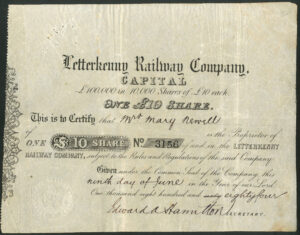 Letterkenny Railway Company.
CAPITAL
£100,000 in 10,000 Shares of £10 each.
ONE £10 SHARE.
This is to Certify that Mrs Mary Nevill
of is the Proprietor of
ONE £10 SHARE No 3156 of and in the LETTERKENNY
RAILWAY COMPANY, subject to the Rules and Regulations of the said Company.
Given under the Common Seal of the Company, this
ninth day of June in the Year of our Lord
One thousand eight hundred and eighty four
Edward R Hamilton SECRETARY.